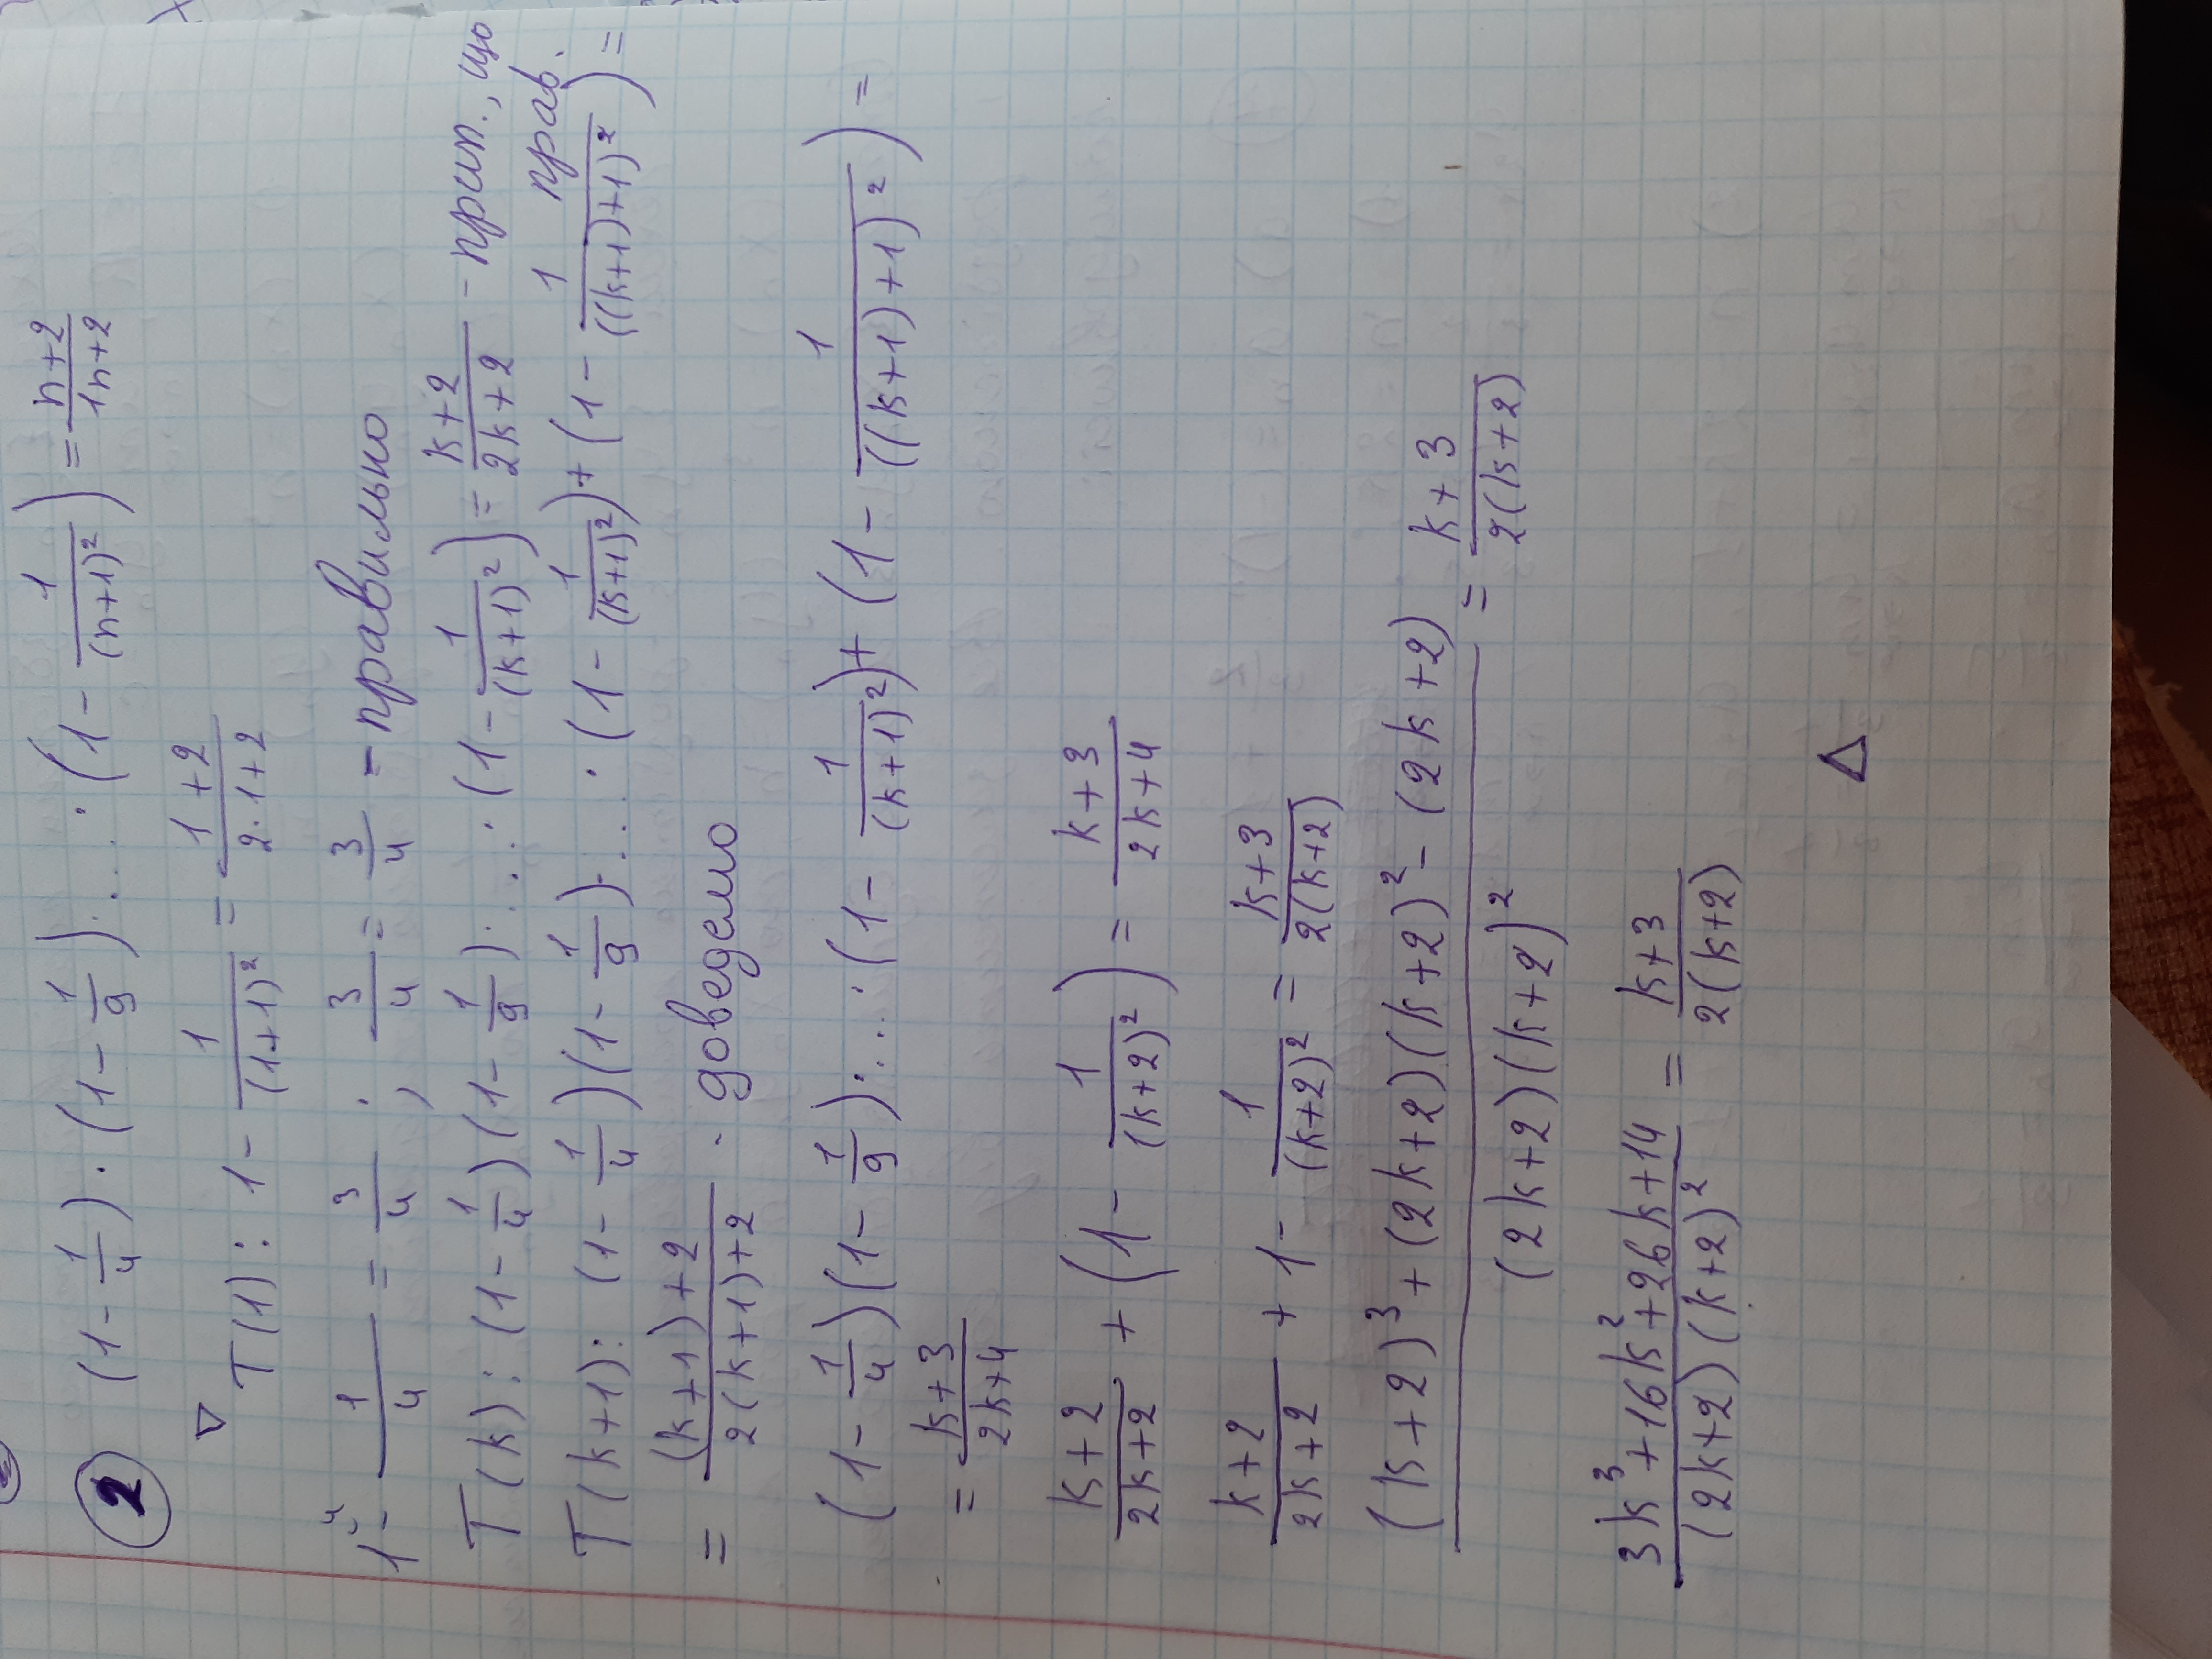 2 (1 - 1/4) · (1 - 1/9) · ... · (1 - 1/(n+1)²) = n+2/1n+2
▽ T(1): 1 - 1/(1+1)² = 1+2/2·1+2
1 - 1/4 = 3/4 ; 3/4 = 3/4 - правильно
T(k): (1 - 1/4)(1 - 1/9) · ... · (1 - 1/(k+1)²) = k+2/2k+2 - прип., що прав.
T(k+1): (1 - 1/4)(1 - 1/9) · ... · (1 - 1/(k+1)²) + (1 - 1/((k+1)+1)²) =
= (k+1)+2/2(k+1)+2 - доведемо
(1 - 1/4)(1 - 1/9) · ... · (1 - 1/(k+1)²) + (1 - 1/((k+1)+1)²) =
= k+3/2k+4
k+2/2k+2 + (1 - 1/(k+2)²) = k+3/2k+4
k+2/2k+2 + 1 - 1/(k+2)² = k+3/2(k+2)
(k+2)³ + (2k+2)(k+2)² - (2k+2)/(2k+2)(k+2)² = k+3/2(k+2)
3k³+16k²+26k+14/(2k+2)(k+2)² = k+3/2(k+2)
△